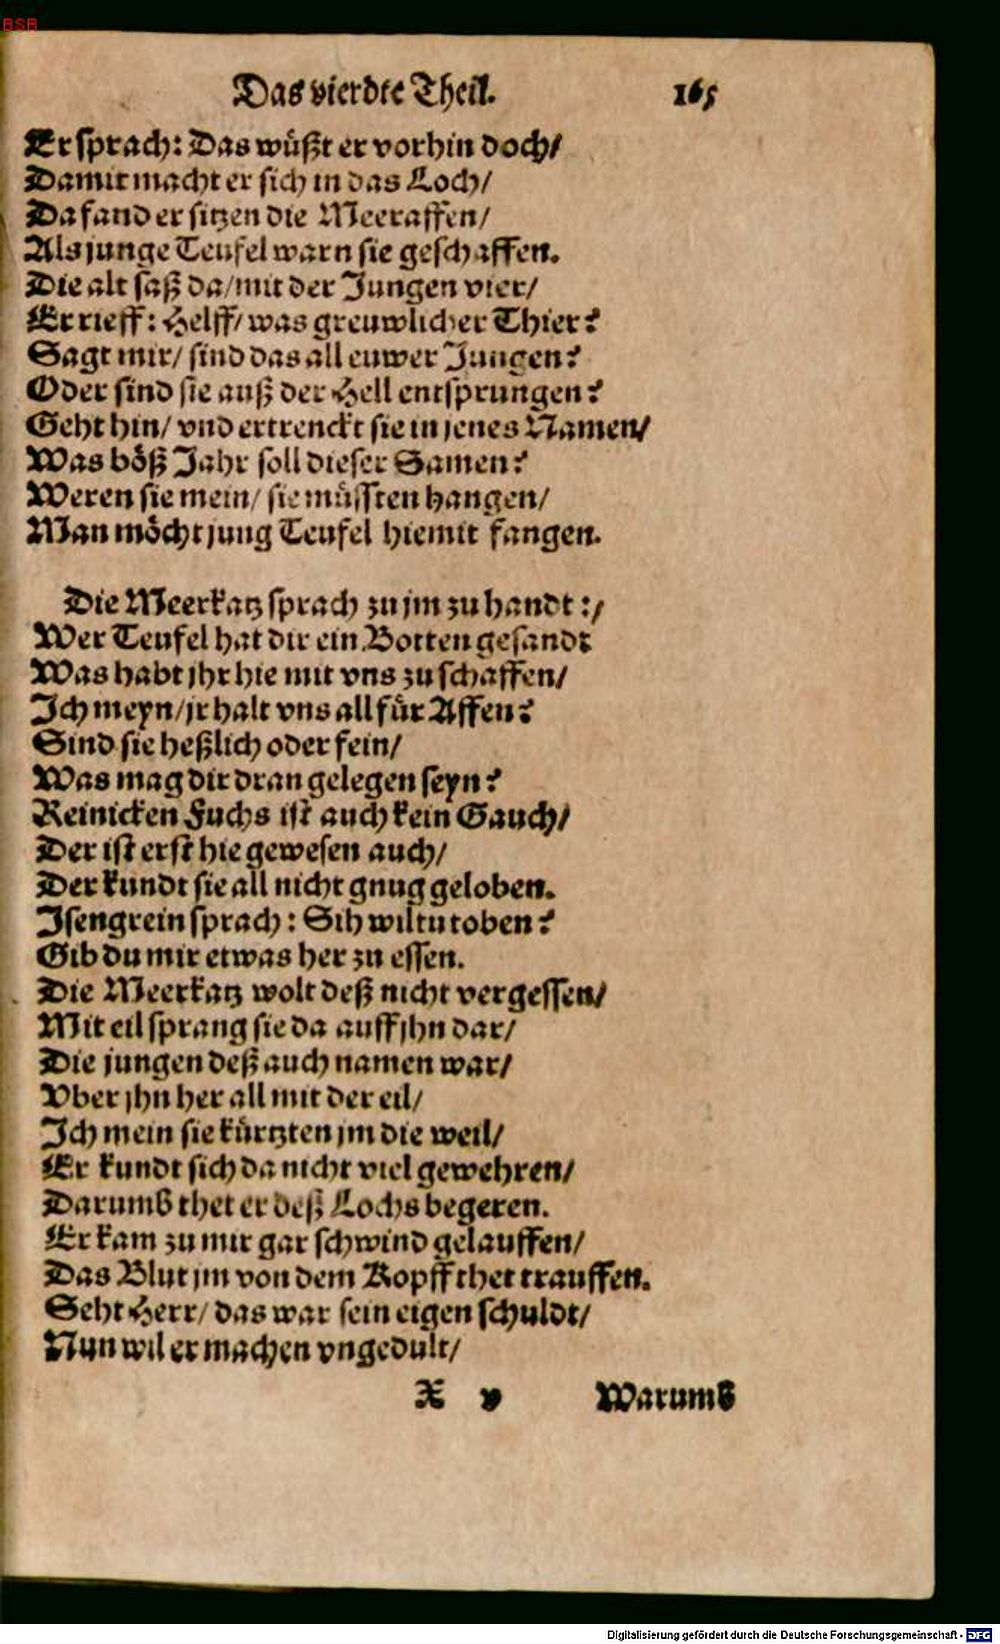 BSB
Das vierdte Theil. 165
Er sprach: Das wüßt er vorhin doch/
Damit macht er sich in das Loch/
Da fand er sitzen die Meeraffen/
Als junge Teufel warn sie geschaffen.
Die alt saß da/mit der Jungen vier/
Er rieff: Helff/ was greuwlicher Thier?
Sagt mir/ sind das all euwer Jungen?
Oder sind sie auß der Hell entsprungen?
Geht hin/ vnd ertrenckt sie in jenes Namen/
Was böß Jahr soll dieser Samen?
Weren sie mein/ sie müssten hangen/
Man möcht jung Teufel hiemit fangen.
Die Meerkatz sprach zu jm zu handt:/
Wer Teufel hat dir ein Botten gesandt
Was habt jhr hie mit vns zu schaffen/
Ich meyn/jr halt vns all für Affen?
Sind sie heßlich oder fein/
Was mag dir dran gelegen seyn?
Reinicken Fuchs ist auch kein Gauch/
Der ist erst hie gewesen auch/
Der kundt sie all nicht gnug geloben.
Isengrein sprach: Sih wiltu toben?
Gib du mir etwas her zu essen.
Die Meerkatz wolt deß nicht vergessen/
Mit eil sprang sie da auff jhn dar/
Die jungen deß auch namen war/
Vber jhn her all mit der eil/
Ich mein sie kürtzten jm die weil/
Er kundt sich da nicht viel gewehren/
Darumb thet er deß Lochs begeren.
Er kam zu mir gar schwind gelauffen/
Das Blut jm von dem Kopff thet trauffen.
Seht Herr/ das war sein eigen schuldt/
Nun wil er machen vngedult/
X v Warumb
Digitalisierung gefördert durch die Deutsche Forschungsgemeinschaft - DFG